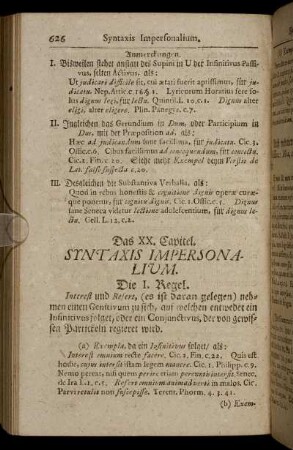 626 Syntaxis Impersonalium.
Anmerckungen.
I. Bißweilen stehet anstatt des Supini in U der Infinitivus Passi-
vus, selten Activus. als:
Ut judicari difficile sit, cui ætati fuerit aptissimus, für ju-
dicatu. Nep. Attic. c. 16. §. 1. Lyricorum Horatius fere so-
lus dignus legi, für lectu. Quintil. L. 10. c. 1. Dignus alter
eligi, alter eligere. Plin. Panegyr. c. 7.
II. Ingleichen das Gerundium in Dum, oder Participium in
Dus, mit der Præposition ad. als:
Hæc ad judicandum sunt facillima, für judicatu. Cic. 3.
Offic. c. 6. Cibus facillimus ad concoquendum, für concoctu.
Cic. 2. Fin. c. 20. Siehe mehr Exempel beym
Lat. c. 20.
III. Desgleichen die Substantiva Verbalia, als:
Quod in rebus honestis & cognitione dignis operæ curæ-
que ponetur, für cognitu dignis. Cic. 1. Offic. c. 6. Dignum
sane Seneca videtur lectione adolescentium, für dignus le-
ctu. Gell. L. 12. c. 2.
Das XX. Capitel.
SYNTAXIS IMPERSONA-
LIUM.
Die I. Regel.
Interest und Refert, (es ist daran gelegen) neh-
men einen Genitivum zu sich, auf welchen entweder ein
Infinitivus folget, oder ein Conjunctivus, der von gewis-
sen Particuln regieret wird.
(a) Exempla, da ein Infinitivus folget, als:
Interest omnium recte facere. Cic. 2. Fin. c. 22. Quis est
hodie, cujus intersit istam legem manere. Cic. 1. Philipp. c. 9.
Nemo perit, nisi quem perire etiam pereuntis interest. Senec.
de Ira L. 1. c. 5. Refert omnium animadverti in malos. Cic.
Parvi retulit non suscepisse. Terent. Phorm. 4. 3. 41.
(b) Exem-